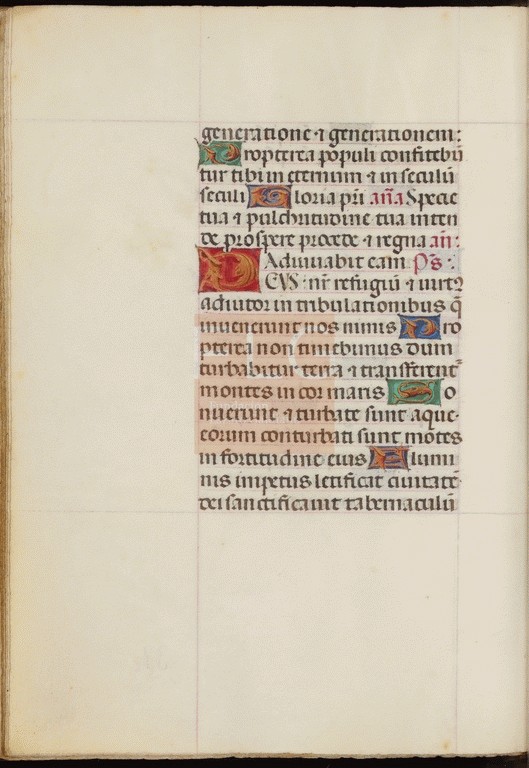 generatione ⁊ generationem:
Propterea populi confitebū
tur tibi in eternum ⁊ in seculū
seculi Gloria pr̄i an̄a Specie
tua ⁊ pulchritudine tua inten
de prospere procede ⁊ regna an̄:
Adiuvabit eam p̄s:
DEVS: nr̄ refugiū ⁊ virtꝰ
adiutor in tribulationibus q̄
invenerunt nos nimis Pro
pterea non timebimus dum
turbabitur terra ⁊ transferent̄
montes in cor maris So
nuerunt ⁊ turbate sunt aque
eorum conturbati sunt mōtes
in fortitudine eius Flumi
nis impetus letificat civitatē
dei sanctificavit tabernaculū